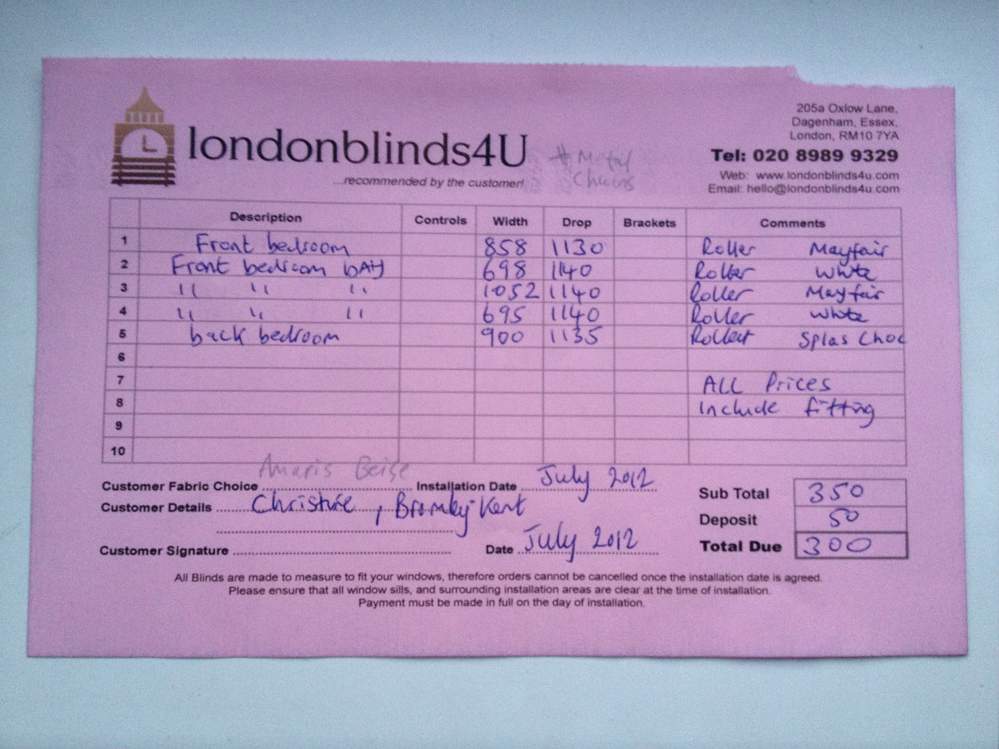 205a Oxlow Lane,
Dagenham, Essex,
London, RM10 7YA
londonblinds4U
...recommended by the customer!
# Metal
Chains
Tel: 020 8989 9329
Web: www.londonblinds4u.com
Email: hello@londonblinds4u.com
Description Controls Width Drop Brackets Comments
1 Front bedroom 858 1130 Roller Mayfair
2 Front bedroom bAY 698 1140 Roller White
3 11 11 11 1052 1140 Roller Mayfair
4 11 11 11 695 1140 Roller White
5 back bedroom 900 1135 Roller Splas Choc
6
7 ALL Prices
8 Include fitting
9
10
Customer Fabric Choice Amaris Beige Installation Date July 2012
Customer Details Christine, Bromley-Kent
Customer Signature Date July 2012
Sub Total 350
Deposit 50
Total Due 300
All Blinds are made to measure to fit your windows, therefore orders cannot be cancelled once the installation date is agreed.
Please ensure that all window sills, and surrounding installation areas are clear at the time of installation.
Payment must be made in full on the day of installation.